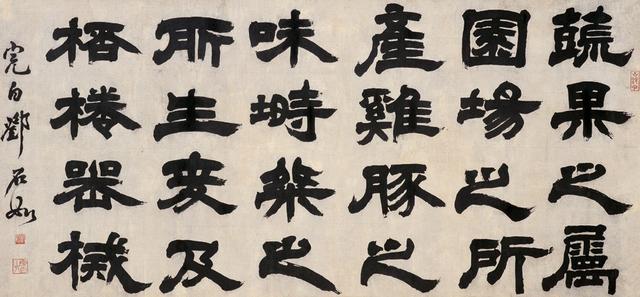 蔬果之屬
園場之所
產雞豚之
味塒桀之
所生爰及
桮棬器械
完白鄧石如